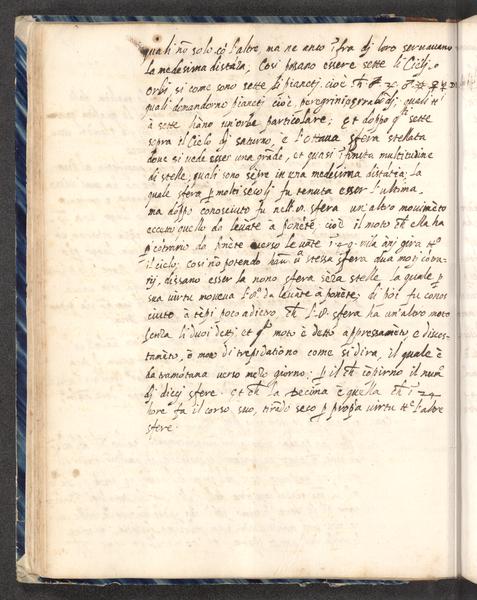 quali nõ solo cõ l'altre, ma ne anco ĩfra dj loro seruauano
la medesima distãza; Cosi posano essere sette li Cielj, o
orbi, si come sono sette li pianetj. cioè ♄ ♃ ♂ ☀ ♀ ☿ ☽
quali domandorno pianetj cioè, peregrinj, errabõdj; quali
à sette hãno un'orbe particolare; Et doppo q̃sti sette
sopra il Cielo dj saturno, è l'ottaua sfera stellata
doue si uede esser una grãde, et quasi ĩfinita multitudine
di stelle, quali sono sẽpre in una medesima distãtia; la
quale sfera p molti secolj fu tenuta esser l'ultima.
ma doppo conosciuto fu nell'8. sfera un'altro mouimẽto
eccetto quello da leuãte à ponẽte; cioè il moto ch̃ ella ha
p cõtrario da ponẽte uerso leuãte
il cielo; Cosi nõ potendo una stessa sfera dua motj cõtra-
rij, dissano esser la nono sfera sẽza stelle la quale p
sua uirtu moueua l'8.ª da leuãte à ponẽte; di poi fu conos
ciuto à tẽpi poco adietro, ch̃ l'8. sfera ha un'altro moto
senza li duoi detti, et q̃sto moto è detto appressamẽto, e discos-
tamẽto, ò moto di trepidationo come si dira, il quale è
da tramõtana uerso mezo giorno; p il ch̃ cõpirno il num.º
dj diecj sfere. Et ch̃ la Decima è quella ch̃ ĩ 24
hore fa il corso suo, tirãdo seco p propria uirtu l'altre
sfere.